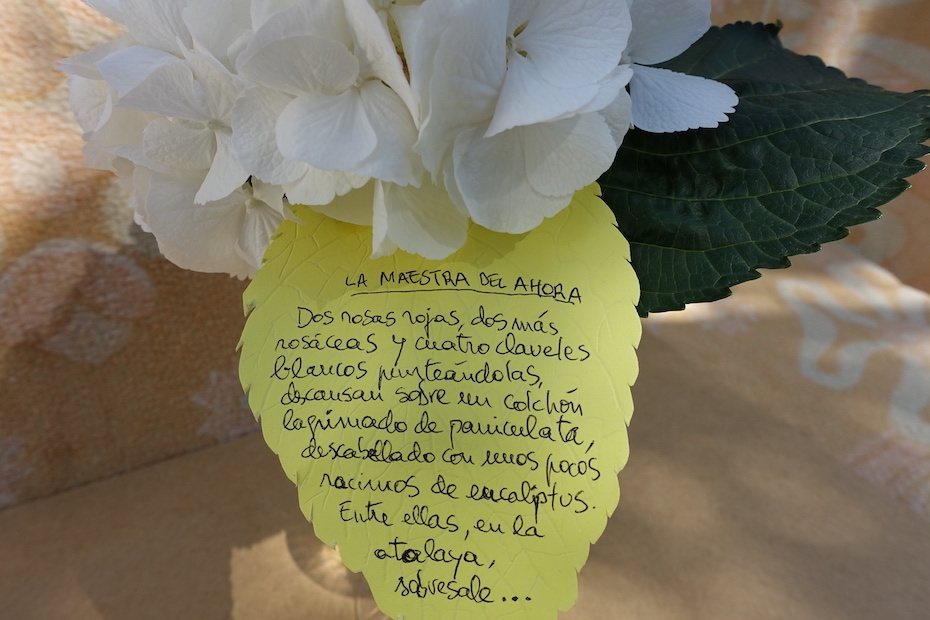 LA MAESTRA DEL AHORA
Dos rosas rojas, dos más
rosáceas y cuatro claveles
blancos punteándolas,
descansan sobre un colchón
lagrimado de paniculata,
descabellado con unos pocos
racimos de eucaliptus.
Entre ellas, en la
atalaya,
sobresale...